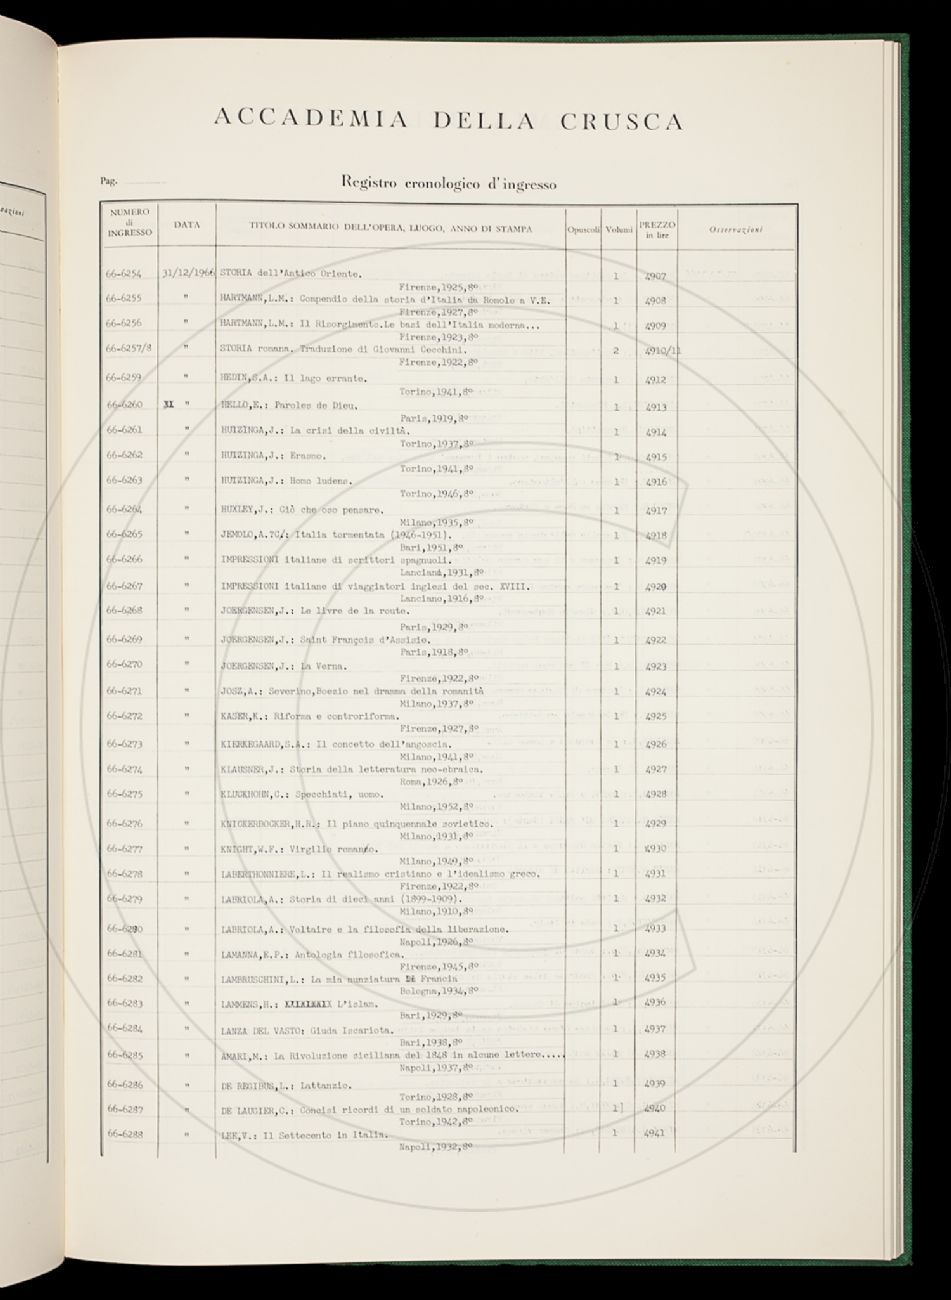 ACCADEMIA DELLA CRUSCA
Pag.
Registro cronologico d'ingresso
NUMERO di INGRESSO DATA TITOLO SOMMARIO DELL'OPERA, LUOGO, ANNO DI STAMPA Opuscoli Volumi PREZZO in lire Osservazioni
66-6254 31/12/1966 STORIA dell'Antico Oriente. 1 4907
Firenze,1925,8º
66-6255 " HARTMANN,L.M.: Compendio della storia d'Italia da Romolo a V.E. 1 4908
Firenze,1927,8º
66-6256 " HARTMANN,L.M.: Il Risorgimento.Le basi dell'Italia moderna... 1 4909
Firenze,1923,8º
66-6257/8 " STORIA romana. Traduzione di Giovanni Cecchini. 2 4910/11
Firenze,1922,8º
66-6259 " HEDIN,S.A.: Il lago errante. 1 4912
Torino,1941,8º
66-6260 " HELLO,E.: Paroles de Dieu. 1 4913
Paris,1919,8º
66-6261 " HUIZINGA,J.: La crisi della civiltà. 1 4914
Torino,1937,8º
66-6262 " HUIZINGA,J.: Erasmo. 1 4915
Torino,1941,8º
66-6263 " HUIZINGA,J.: Homo ludens. 1 4916
Torino,1946,8º
66-6264 " HUXLEY,J.: Ciò che oso pensare. 1 4917
Milano,1935,8º
66-6265 " JEMOLO,A.TC/: Italia tormentata (1946-1951). 1 4918
Bari,1951,8º
66-6266 " IMPRESSIONI italiane di scrittori spagnuoli. 1 4919
Lanciano,1931,8º
66-6267 " IMPRESSIONI italiane di viaggiatori inglesi del sec. XVIII. 1 4920
Lanciano,1916,8º
66-6268 " JOERGENSEN,J.: Le livre de la route. 1 4921
Paris,1929,8º
66-6269 " JOERGENSEN,J.: Saint François d'Assisie. 1 4922
Paris,1918,8º
66-6270 " JOERGENSEN,J.: La Verna. 1 4923
Firenze,1922,8º
66-6271 " JOSZ,A.: Severino,Boezio nel dramma della romanità 1 4924
Milano,1937,8º
66-6272 " KASER,K.: Riforma e controriforma. 1 4925
Firenze,1927,8º
66-6273 " KIERKEGAARD,S.A.: Il concetto dell'angoscia. 1 4926
Milano,1941,8º
66-6274 " KLAUSNER,J.: Storia della letteratura neo-ebraica. 1 4927
Roma,1926,8º
66-6275 " KLUCKHOHN,C.: Specchiati, uomo. 1 4928
Milano,1952,8º
66-6276 " KNICKERBOCKER,H.R.: Il piano quinquennale sovietico. 1 4929
Milano,1931,8º
66-6277 " KNIGHT,W.F.: Virgilio romano. 1 4930
Milano,1949,8º
66-6278 " LABERTHONNIERE,L.: Il realismo cristiano e l'idealismo greco. 1 4931
Firenze,1922,8º
66-6279 " LABRIOLA,A.: Storia di dieci anni (1899-1909). 1 4932
Milano,1910,8º
66-6280 " LABRIOLA,A.: Voltaire e la filosofia della liberazione. 1 4933
Napoli,1926,8º
66-6281 " LAMANNA,E.P.: Antologia filosofica. 1 4934
Firenze,1945,8º
66-6282 " LAMBRUSCHINI,L.: La mia nunziatura DE Francia 1 4935
Bologna,1934,8º
66-6283 " LAMMENS,H.: L'islam. 1 4936
Bari,1929,8º
66-6284 " LANZA DEL VASTO: Giuda Iscariota. 1 4937
Bari,1938,8º
66-6285 " AMARI,M.: La Rivoluzione siciliana del 1848 in alcune lettere.... 1 4938
Napoli,1937,8º
66-6286 " DE REGIBUS,L.: Lattanzio. 1 4939
Torino,1928,8º
66-6287 " DE LAUGIER,C.: Concisi ricordi di un soldato napoleonico. 1 4940
Torino,1942,8º
66-6288 " LEE,V.: Il Settecento in Italia. 1 4941
Napoli,1932,8º